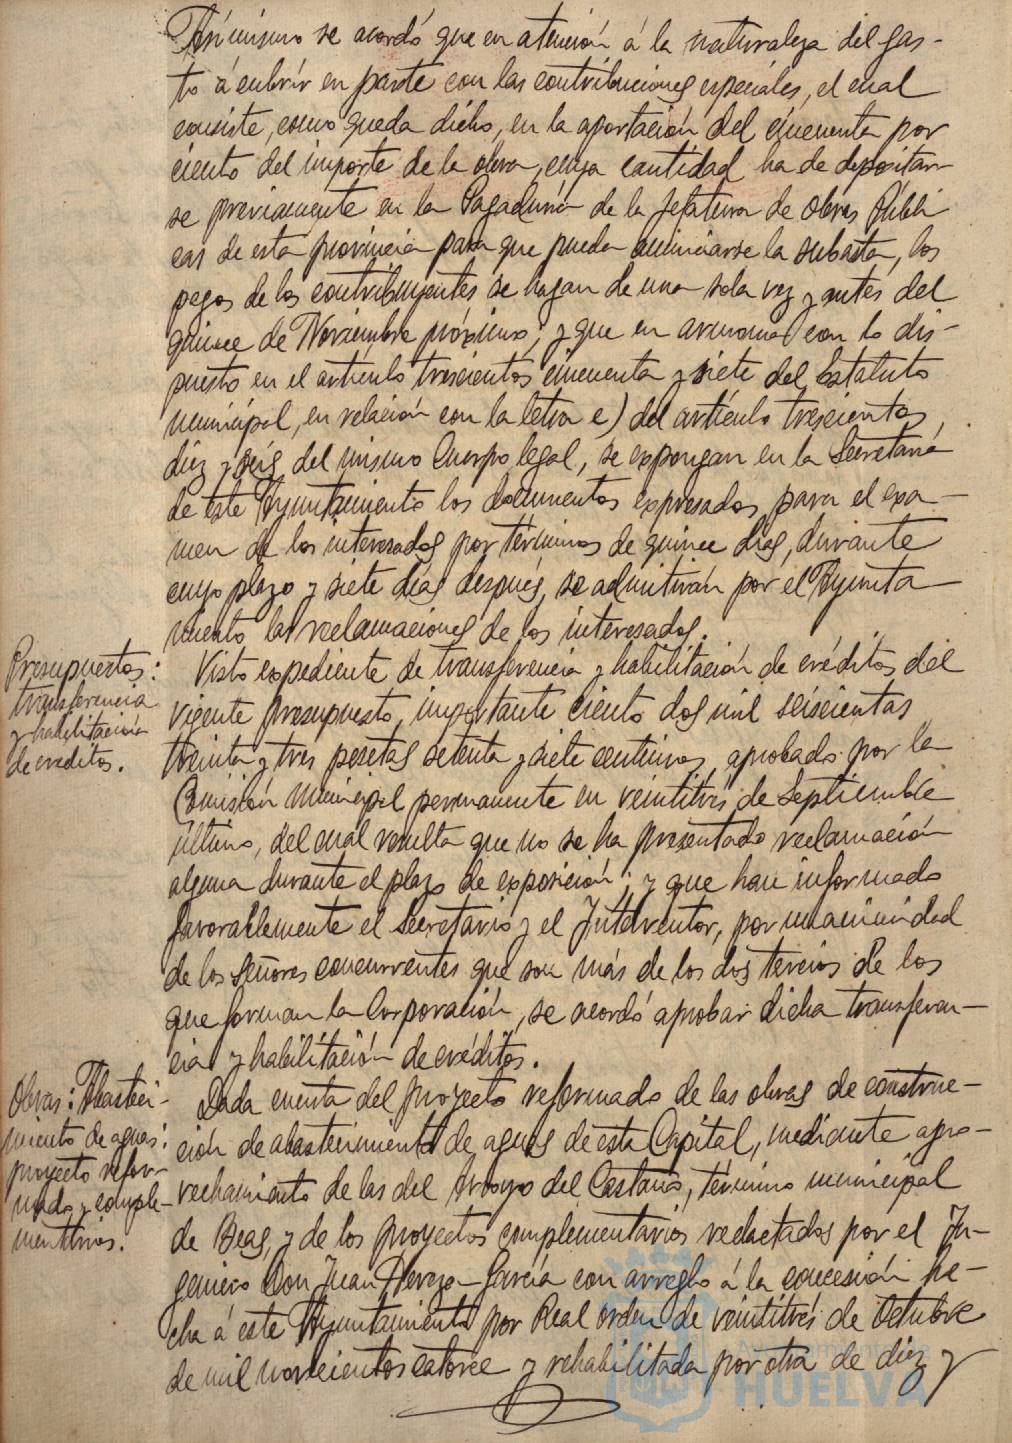 Asímismo se acordó que en atención á la naturaleza del gas-
to á cubrir en parte con las contribuciones especiales, el cual
consiste, como queda dicho, en la aportación del cincuenta por
ciento del importe de la obra, cuya cantidad ha de depositar-
se previamente en la Pagaduría de la Jefatura de Obras Públi
cas de esta provincia para que pueda anunciarse la subasta, los
pagos de los contribuyentes se hagan de una sola vez y antes del
quince de Noviembre próximo; y que en armonía con lo dis-
puesto en el artículo trescientos cincuenta y siete del Estatuto
municipal, en relación con la letra e) del artículo trescientos
diez y seis del mismo Cuerpo legal, se expongan en la Secretaría
de este Ayuntamiento los documentos expresados, para el exa-
men de los interesados por términos de quince días, durante
cuyo plazo y siete días después, se admitirán por el Ayunta-
miento las reclamaciones de los interesados.
Presupuestos:
transferencia
y habilitación
de creditos.
Visto expediente de transferencia y habilitación de créditos del
vigente presupuesto, importante ciento dos mil seiscientas
treinta y tres pesetas setenta y siete centimos, aprobado por la
Comisión Municipal permanente en veintitrés de Septiembre
último, del cual resulta que no se ha presentado reclamación
alguna durante el plazo de exposición; y que han informado
favorablemente el Secretario y el Interventor, por unanimidad
de los Señores concurrentes que son más de los dos tercios de los
que forman la Corporación, se acordó aprobar dicha transferen-
cia y habilitación de créditos.
Obras: Abasteci-
miento de aguas:
proyecto refor-
mado y comple-
mentarios.
Dada cuenta del proyecto reformado de las obras de construc-
ción de abastecimiento de aguas de esta Capital, mediante apro-
vechamiento de las del Arroyo del Castaño, término municipal
de Beas, y de los proyectos complementarios redactados por el In-
geniero Don Juan García con arreglo á la concesión he-
cha á este Ayuntamiento por Real orden de veintitrés de Octubre
de mil novecientos catorce y rehabilitada por otra de diez y
Ayuntamiento de
HUELVA